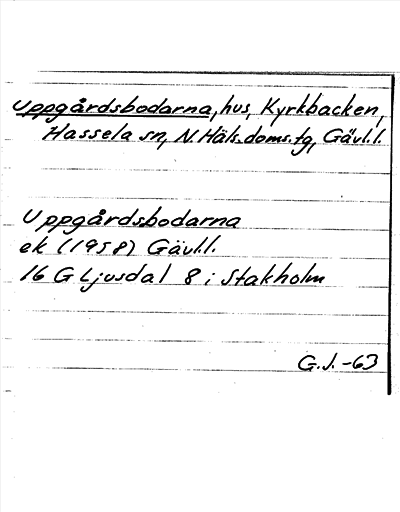 Uppgårdsbodarna, hus, Kyrkbacken,
Hassela sn, N. Häls. doms. tg, Gävl. l.
Uppgårdsbodarna
ek (1958) Gävl. l.
16 G Ljusdal 8 i Stakholm
G. J. -63